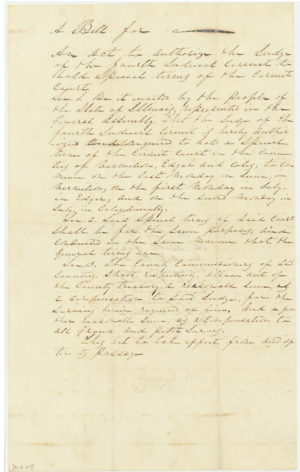 A Bill for
An Act to authorize the Judge
of the fourth Judicial Circuit to
hold Special terms of the Circuit
Court
Sec. 1 Be it enacted by the people of
the State of Illinois, represented in the
General Assembly, That the Judge of the
fourth Judicial Circuit is hereby author
ized required to hold a Special
term of the Circuit Court in the coun
ties of Vermilion, Edgar and Coles, to com
mence on the last Monday in June, in
Vermilion, on the first Monday in July
in Edgar, and on the second Monday in
July in Coles County
Sec 2 Said Special terms of said Court
shall be for the same purposes, and
conducted in the same manner that the
General terms are
Sec 3. The County Commissioners of said
Counties shall respectively, allow out of
the County treasury, a reasonable sum, as
a compensation to said Judge, for the
services herein required of him, And a
reasonable sum, as a compensation to
all Grand and petit Jurors.
This act to take effect from and af
ter its passage